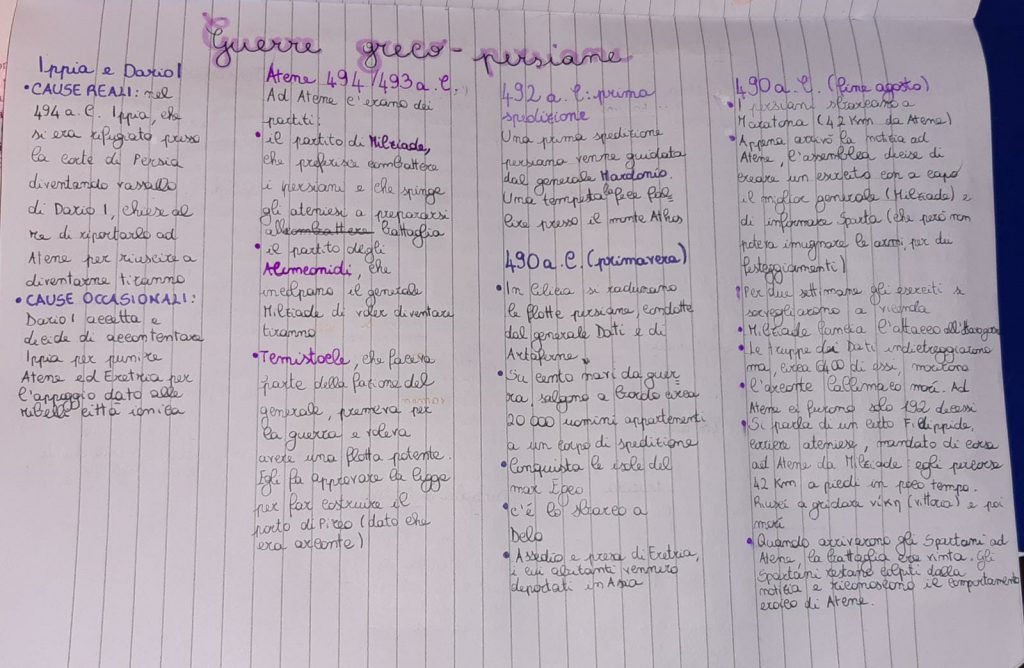 Guerre greco-persiane
Ippia e Dario I
• CAUSE REALI: nel
494 a.C. Ippia, che
si era rifugiato presso
la corte di Persia
diventando vassallo
di Dario I, chiese al
re di riportarlo ad
Atene per riuscire a
diventarne tiranno
• CAUSE OCCASIONALI:
Dario I accetta e
decide di accontentare
Ippia per punire
Atene ed Eretria per
l'appoggio dato alle
ribelli città ionica
Atene 494/493 a.C.
Ad Atene c'erano dei
partiti:
• il partito di Milziade,
che preferisce combattere
i persiani e che spinge
gli ateniesi a prepararsi
alla combattere battaglia
• il partito degli
Alcmeonidi, che
incolpano il generale
Milziade di voler diventare
tiranno
• Temistocle, che faceva
parte della fazione del
generale, premeva per
la guerra e voleva
avere una flotta potente.
Egli fa approvare la legge
per far costruire il
porto di Pireo (dato che
era arconte)
492 a.C.: prima
spedizione
Una prima spedizione
persiana venne guidata
dal generale Mardonio.
Una tempesta la fece fal-
lire presso il monte Athos
490 a.C. (primavera)
• In Cilicia si radunano
le flotte persiane, condotte
dal generale Dati e di
Artaferne
• Su cento navi da guer-
ra, salgono a bordo circa
20 000 uomini appartenenti
a un corpo di spedizione
• Conquista le isole del
mar Egeo
• c'è lo sbarco a
Delo
• Assedio e presa di Eretria,
i cui abitanti vennero
deportati in Asia
490 a.C. (fine agosto)
• I persiani sbarcano a
Maratona (42 Km da Atene)
• Appena arrivò la notizia ad
Atene, l'assemblea decise di
creare un esercito con a capo
il miglior generale (Milziade) e
di informare Sparta (che però non
poteva impugnare le armi, per dei
festeggiamenti)
• Per due settimane gli eserciti si
sorvegliarono a vicenda
• Milziade lancia l'attacco
• Le truppe dei Dati indietreggiarono
ma, circa 6400 di essi, morirono
• l'arconte Callimaco morì. Ad
Atene ci furono solo 192 decessi
• Si parla di un certo Fidippide,
corriere ateniese, mandato di corsa
ad Atene da Milziade: egli percorse
42 Km a piedi in poco tempo.
Riuscì a gridare νίκη (vittoria) e poi
morì
• Quando arrivarono gli Spartani ad
Atene, la battaglia era vinta. Gli
Spartani restano colpiti dalla
notizia e riconoscono il comportamento
eroico di Atene.